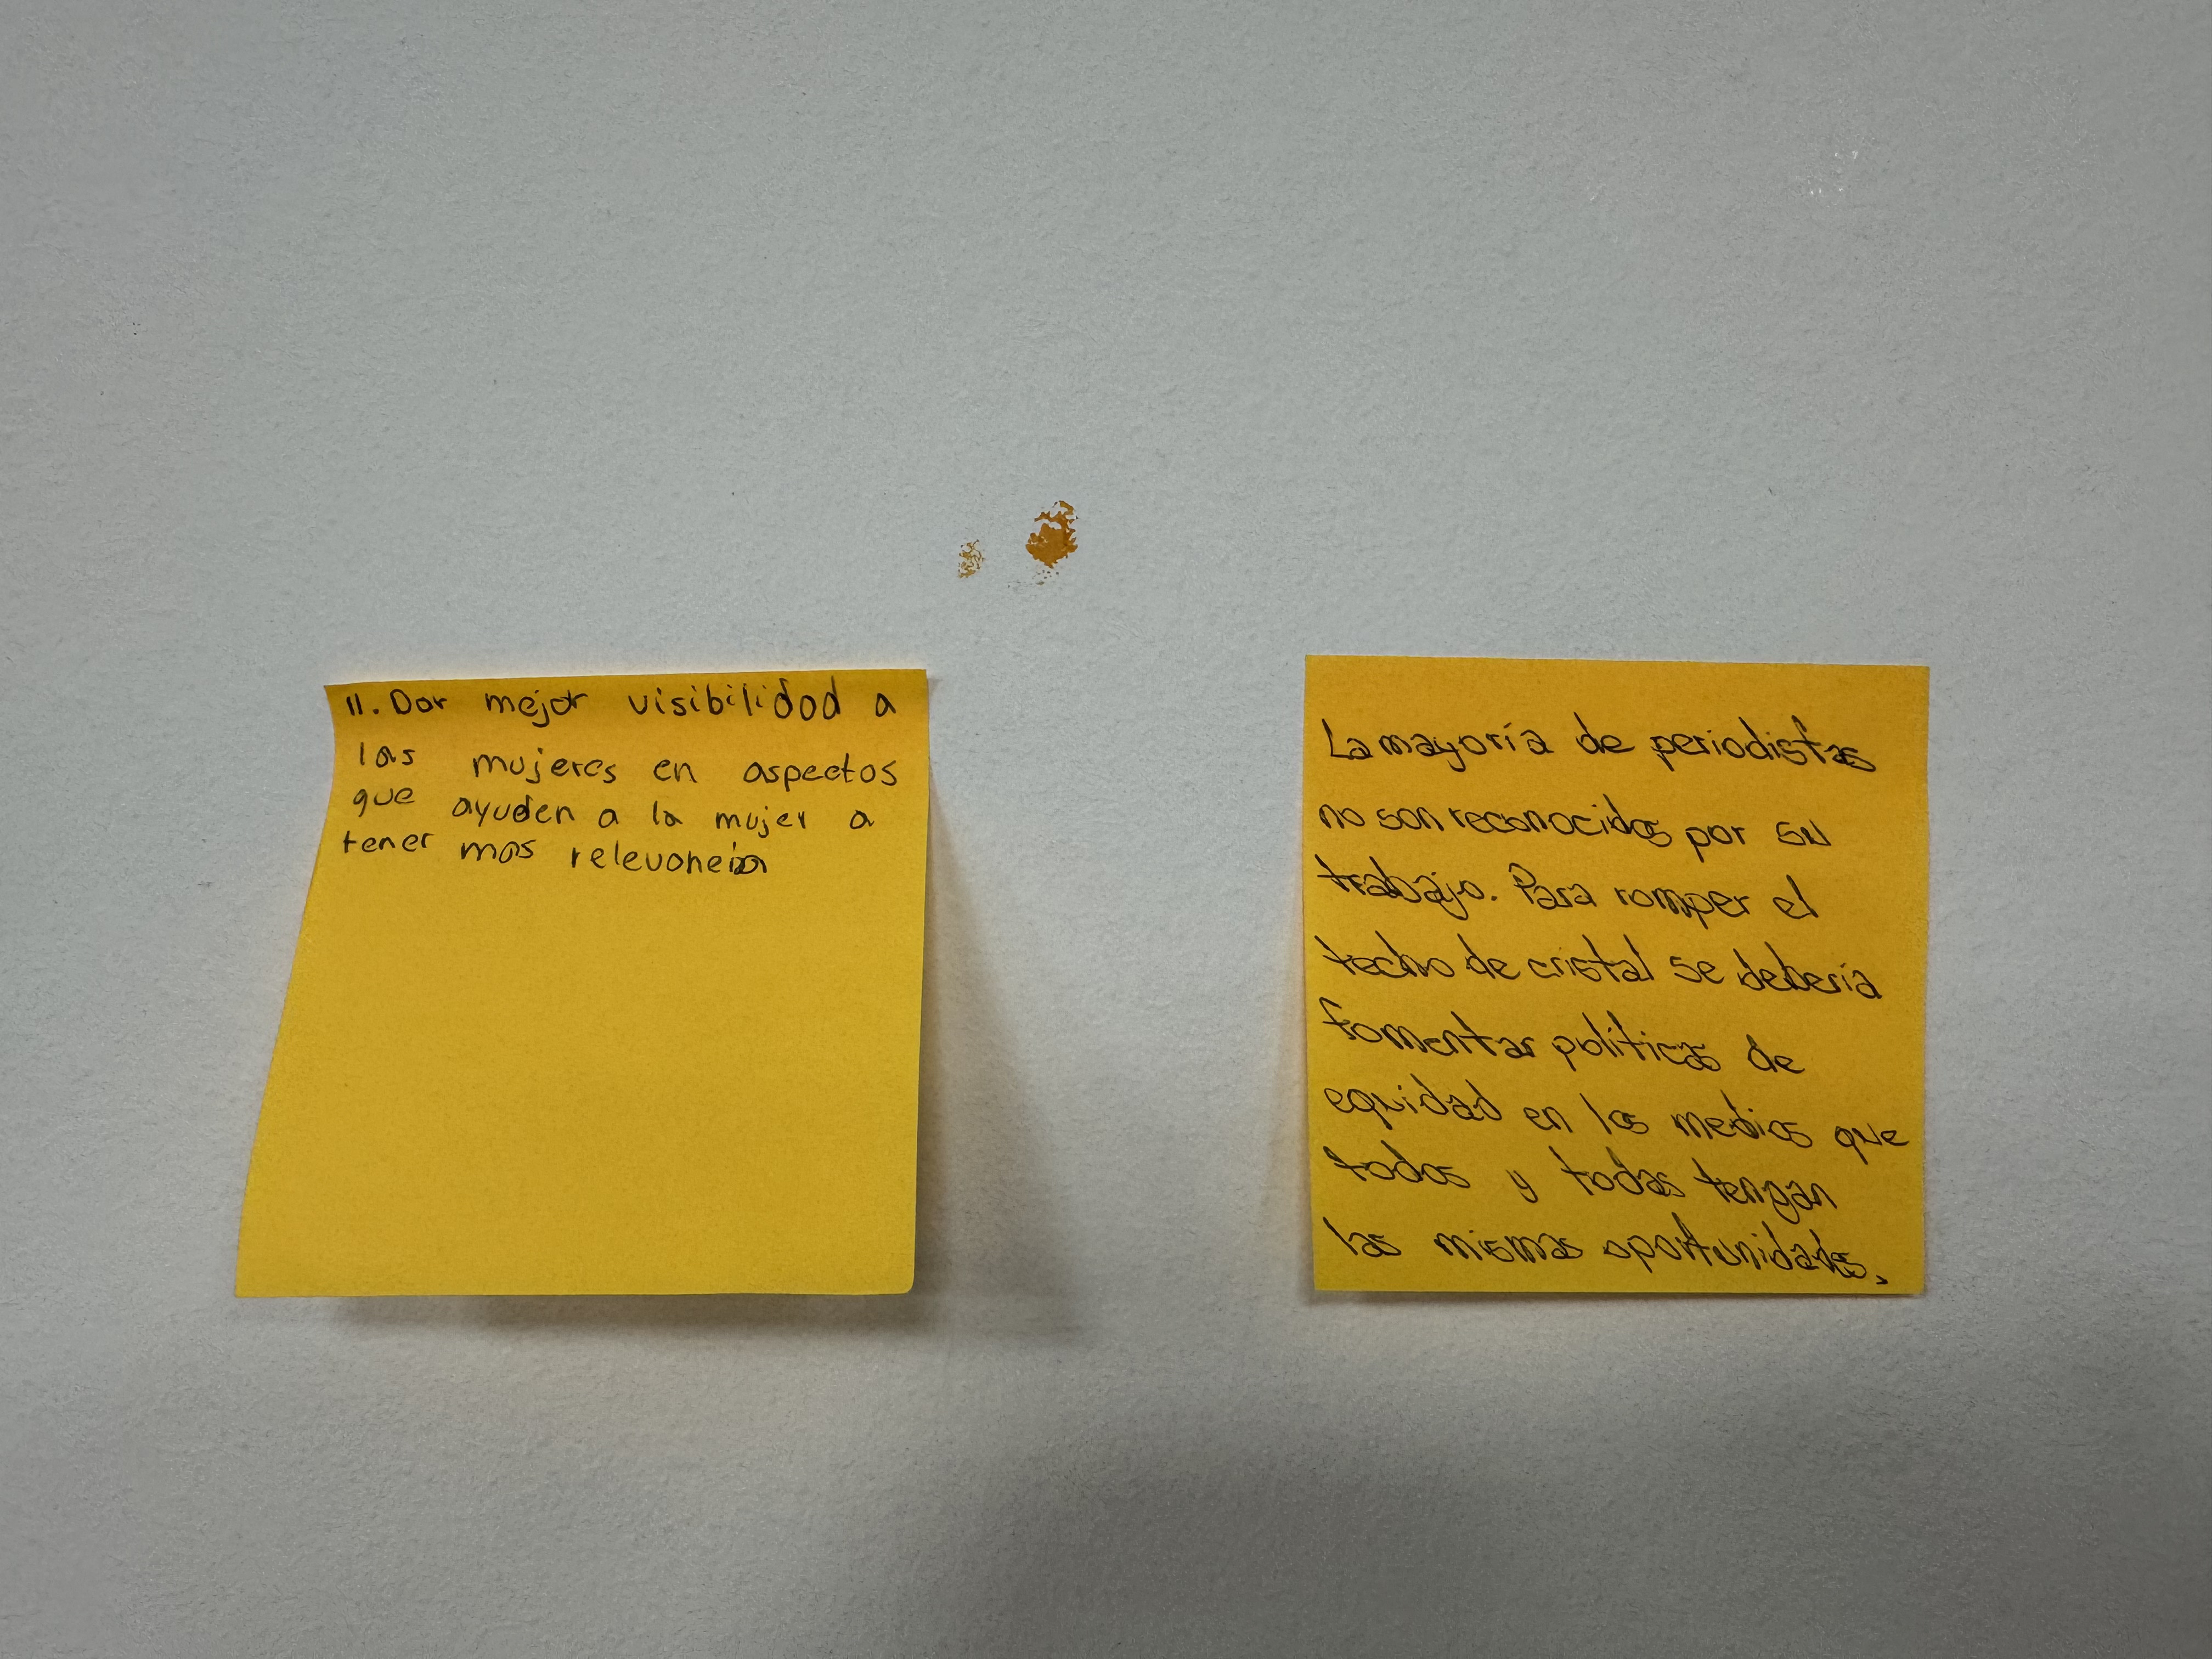 11. Dar mejor visibilidad a
las mujeres en aspectos
que ayuden a la mujer a
tener mas relevancia
La mayoría de periodistas
no son reconocidos por su
trabajo. Para romper el
techo de cristal se debería
fomentar politicas de
equidad en los medios que
todos y todas tengan
las mismas oportunidades.